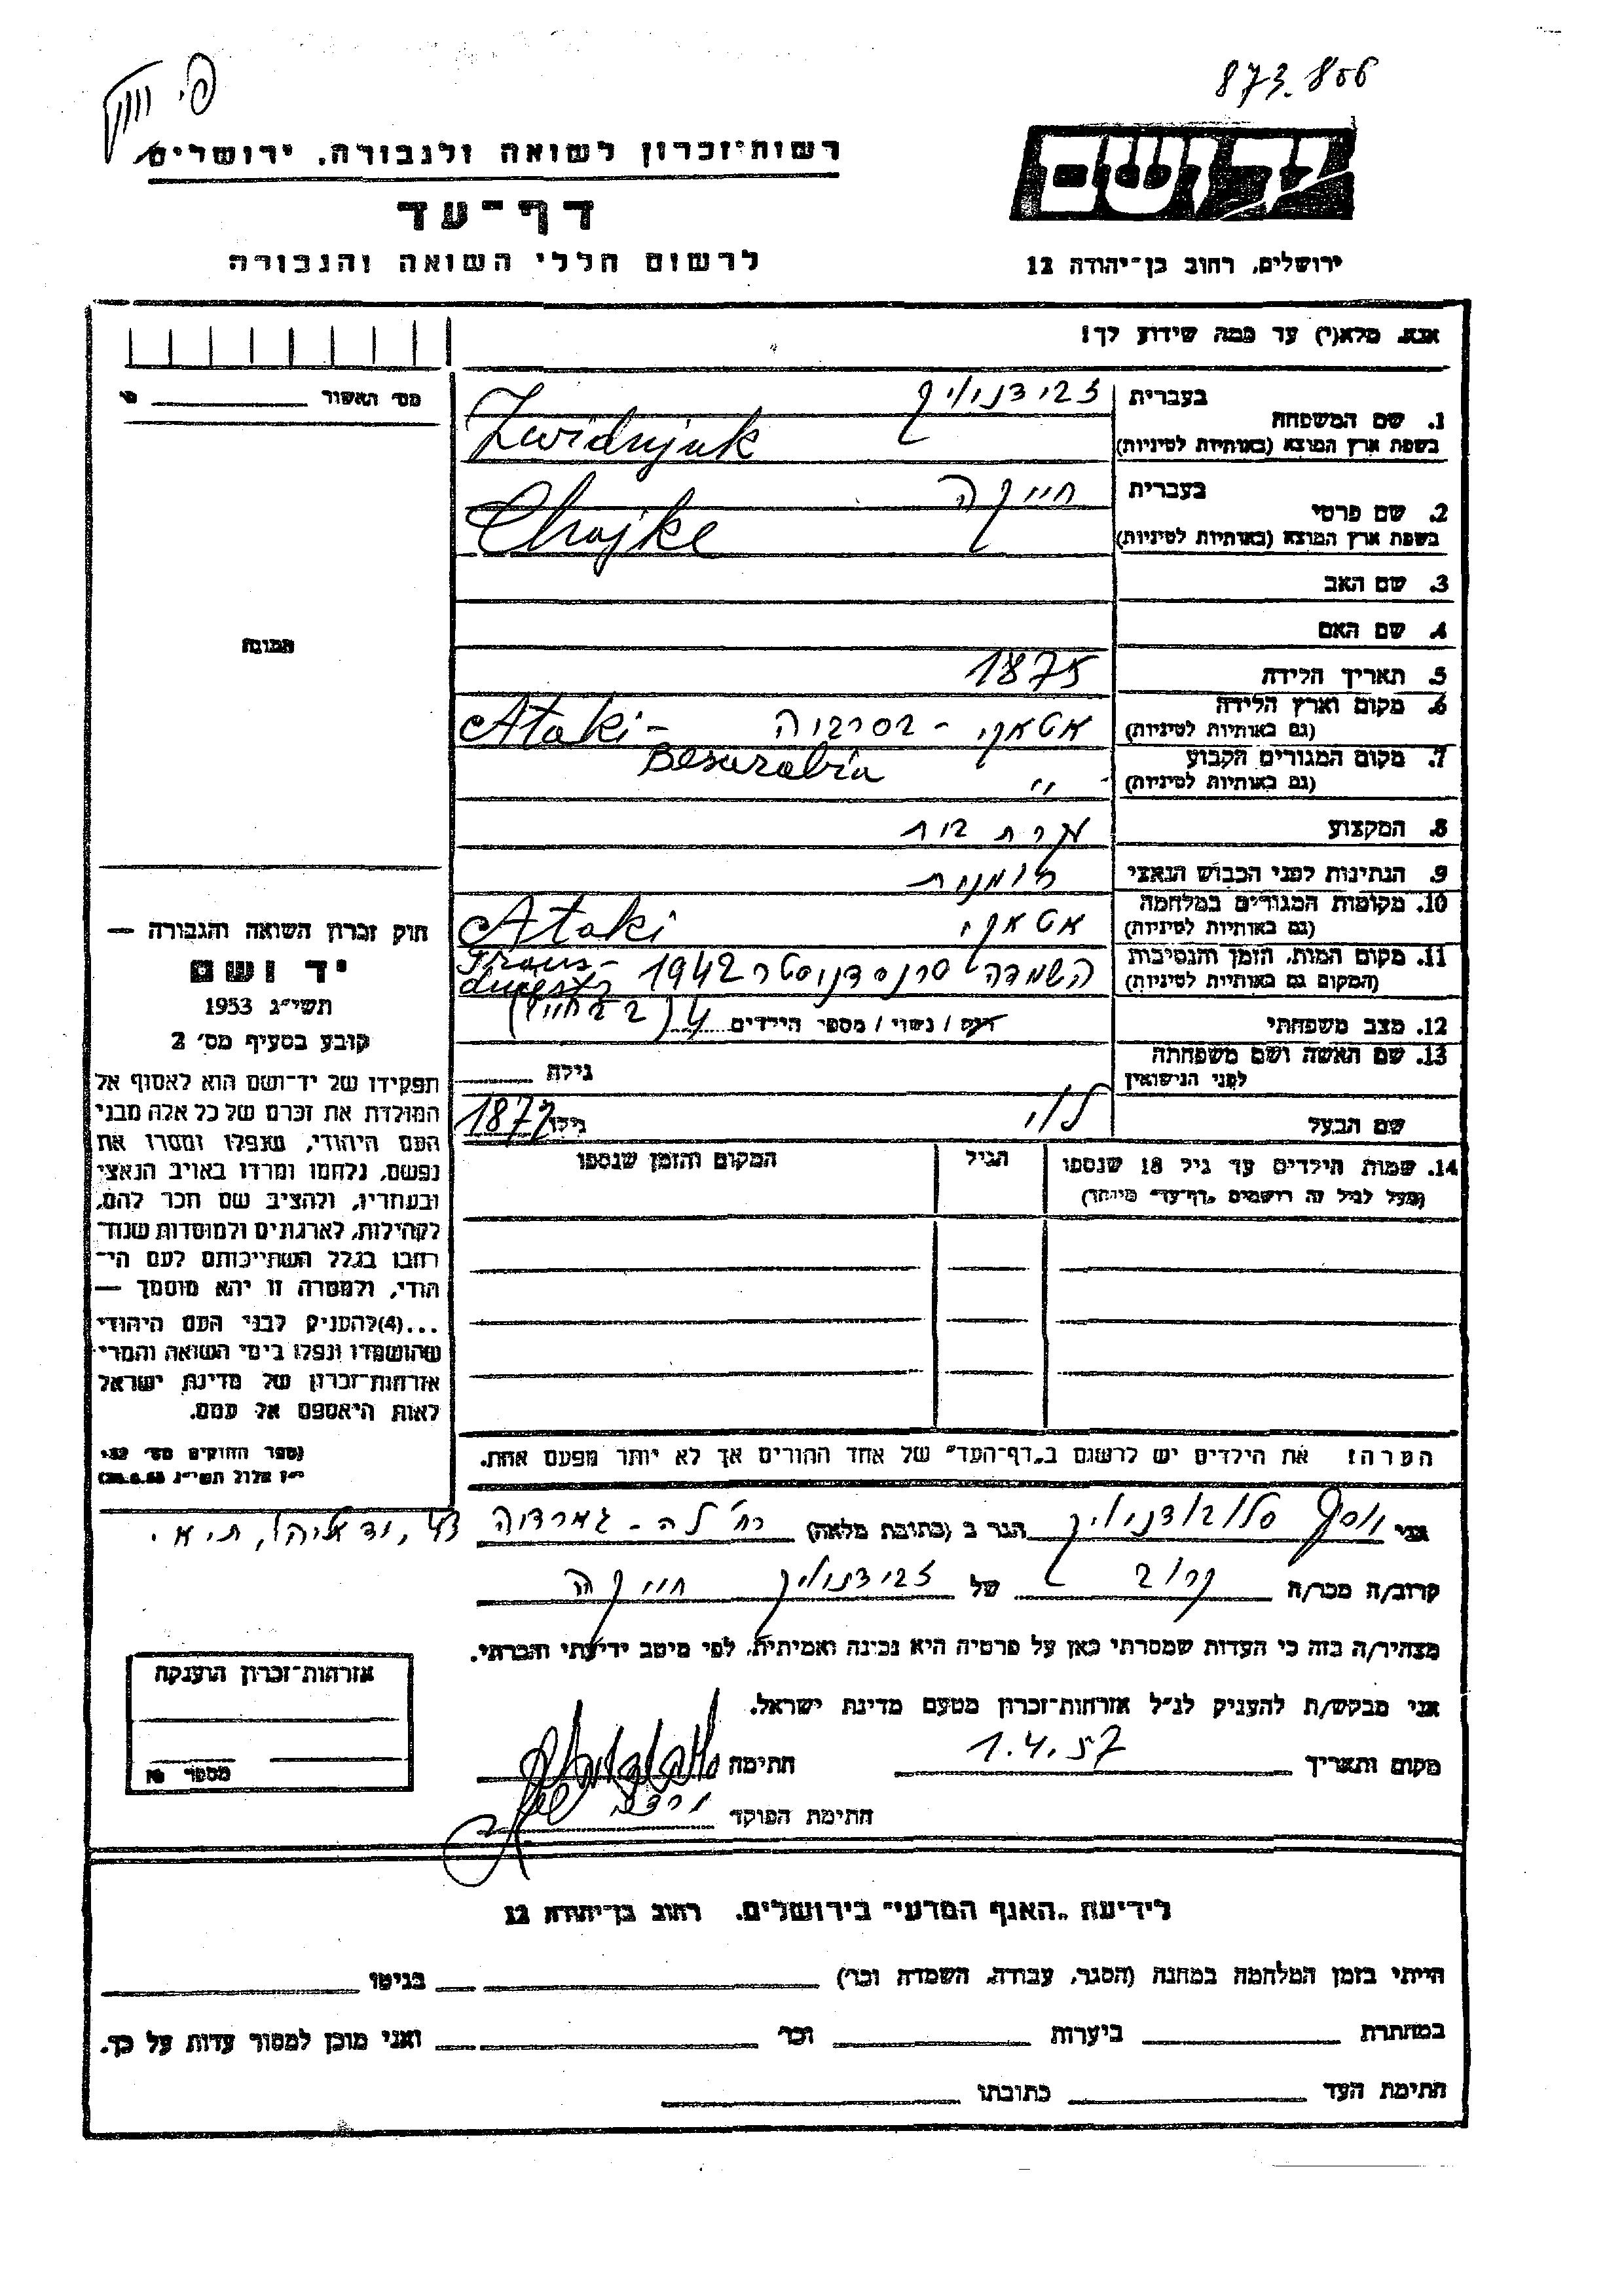 873.806
רשות־זכרון לשואה ולגבורה, ירושלים
יד ושם
דף־עד
לרשום חללי השואה והגבורה
ירושלים, רחוב בן־יהודה 12
אנא, מלא(י) עד כמה שידוע לך!
מס׳ האשור
1. שם המשפחה
בעברית
בשפת ארץ המוצא (באותיות לטיניות)
Zwidnjuk
2. שם פרטי
בעברית חייקה
בשפת ארץ המוצא (באותיות לטיניות)
Chajke
3. שם האב
4. שם האם
תמונה
5. תאריך הלידה 1875
6. מקום וארץ הלידה
(גם באותיות לטיניות)
אטאקי - בסרביה Ataki -
Besarabia
7. מקום המגורים הקבוע
(גם באותיות לטיניות)
"
8. המקצוע עקרת בית
9. הנתינות לפני הכבוש הנאצי רומנית
10. מקומות המגורים במלחמה
(גם באותיות לטיניות)
אטאקי Ataki
11. מקום המות, הזמן והנסיבות
(המקום גם באותיות לטיניות)
השמדה טרנסדניסטר 1942 Trans-
dniestr
12. מצב משפחתי רווק / נשוי / מספר הילדים 4
13. שם האשה ושם משפחתה
לפני הנישואין
גילה
שם הבעל לוי גילו 1877
14. שמות הילדים עד גיל 18 שנספו
(מעל לגיל זה רושמים „דף־עד” מיוחד)
הגיל
המקום והזמן שנספו
חוק זכרון השואה והגבורה —
יד ושם
תשי״ג 1953
קובע בסעיף מס׳ 2
תפקידו של יד־ושם הוא לאסוף אל
המולדת את זכרם של כל אלה מבני
העם היהודי, שנפלו ומסרו את
נפשם, נלחמו ומרדו באויב הנאצי
ובעוזריו, ולהציב שם וזכר להם,
לקהילות, לארגונים ולמוסדות שנח־
רבו בגלל השתייכותם לעם הי־
הודי, ולמטרה זו יהא מוסמך —
...(4)להעניק לבני העם היהודי
שהושמדו ונפלו בימי השואה והמרי
אזרחות־זכרון של מדינת ישראל
לאות היאספם אל עמם.
(ספר החוקים מס׳ 132
י״ז אלול תשי״ג 28.8.53)
הערה: את הילדים יש לרשום ב„דף־העד” של אחד ההורים אך לא יותר מפעם אחת.
אני יוסף הגר ב (כתובת מלאה) רח׳ לה-גוארדיה 43, יד אליהו, ת״א
קרוב/ה מכר/ה קרוב של חייקה
מצהיר/ה בזה כי העדות שמסרתי כאן על פרטיה היא נכונה ואמיתית, לפי מיטב ידיעתי והכרתי.
אני מבקש/ת להעניק לנ״ל אזרחות־זכרון מטעם מדינת ישראל.
מקום ותאריך 1.4.57 חתימה
חתימת הפוקד
אזרחות־זכרון הוענקה
מספר
לידיעת „האגף המדעי” בירושלים, רחוב בן־יהודה 12
הייתי בזמן המלחמה במחנה (הסגר, עבודה, השמדה וכר׳) בגיטו
במחתרת ביערות וכר׳ ואני מוכן למסור עדות על כך.
חתימת העד כתובתו